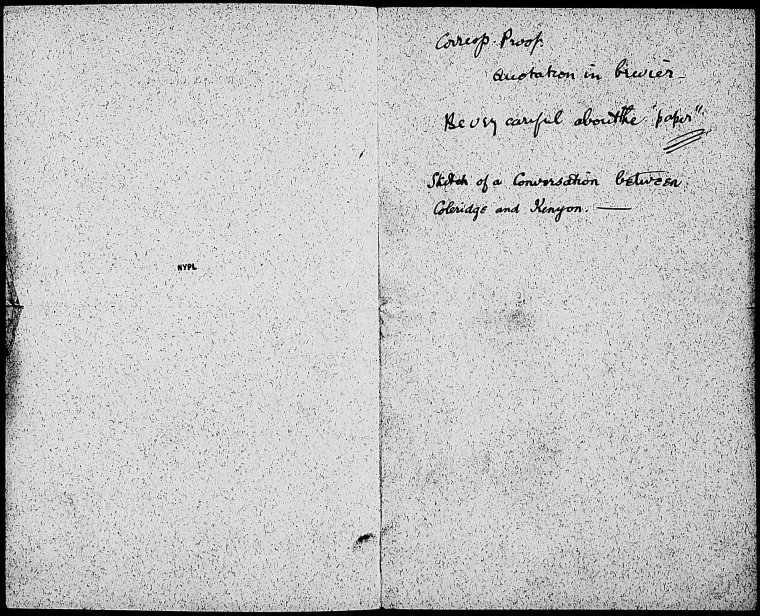 NYPL
Corresp. Proof.
Quotation in brevier –
Be very careful about the "paper"
Sketch of a Conversation between
Coleridge and Kenyon. —